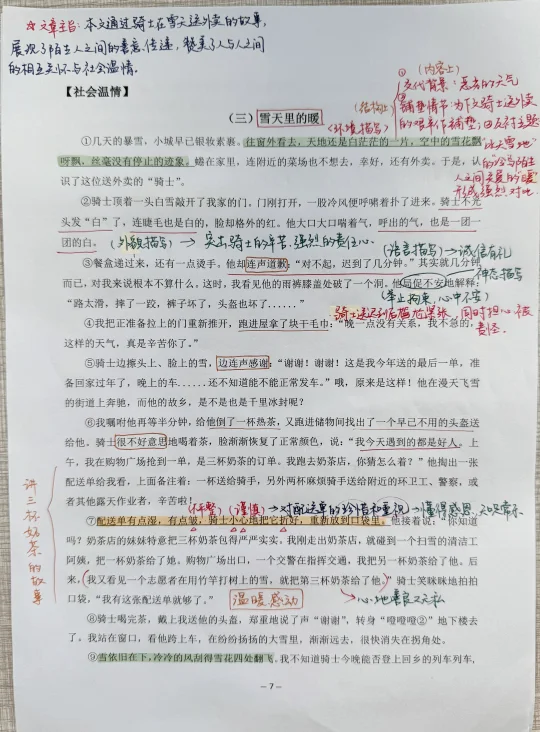 ☆文章主旨:本文通过骑士在雪天送外卖的故事,
展现了陌生人之间的善意传递,赞美了人与人之间
的相互关怀与社会温情。
【社会温情】
(三)雪天里的暖
(环境描写)
(结构上)
(内容上)
①交代背景:恶劣的天气
②铺垫情节:为下文骑士送外卖
的艰辛作铺垫;
③反衬主题
"冰天雪地"
的"冷"与陌生
人之间关爱的"暖"
形成强烈对比
①几天的暴雪,小城早已银妆素裹。往窗外看去,天地还是白茫茫的一片,空中的雪花飘
呀飘,丝毫没有停止的迹象。蜷在家里,连附近的菜场也不想去,幸好,还有外卖。于是,认
识了这位送外卖的“骑士”。
②骑士顶着一头白雪敲开了我家的门,门刚打开,一股冷风便呼啸着扑了进来。骑士不光
头发“白”了,连睫毛也是白的,脸却格外的红。他大口大口喘着气,呼出的气,也是一团一
团的白。
(外貌描写)→突出骑士的辛苦、强烈的责任心。
(语言描写)→诚信有礼
③餐盒递过来,还有一点烫手。他却连声道歉:“对不起,迟到了几分钟。”其实就几分钟
而已,对我来说根本不算什么。这时,我看见他的雨裤膝盖处破了一个洞。他局促不安地解释:
神态描写
(举止拘束,心中不安)
“路太滑,摔了一跤,裤子坏了,头盔也坏了......”
骑士送迟到后尴尬紧张,同时担心被
责怪。
④我把正准备拉上的门重新推开,跑进屋拿了块干毛巾:“晚一点没有关系,我不急的,
这样的天气,真是辛苦了。”
⑤骑士边擦头上、脸上的雪,边连声感谢:“谢谢!谢谢!这是我今年送的最后一单,准
备回家过年了,晚上的车......还不知道能不能正常发车。”哦,原来是这样!他在漫天飞雪
的街道上奔驰,而他的故乡,是不是也是千里冰封呢?
⑥我嘱咐他再等半分钟,给他倒了一杯热茶,又跑进储物间找出了一个早已不用的头盔送
给他。骑士很不好意思地喝着茶,脸渐渐恢复了正常颜色,说:“我今天遇到的都是好人。上
午,我在购物广场抢到一单,是三杯奶茶的订单。我跑去奶茶店,你猜怎么着?”他掏出一张
配送单给我看,上面备注着:一杯送给骑手,另外两杯麻烦骑手送给附近的环卫工、警察,或
者其他露天作业者,辛苦啦!
(怀警)(谨慎)→对配送单的珍惜和重视→懂得感恩
⑦配送单有点湿,有点皱,骑士小心地把它折好,重新放到口袋里。他接着说:“你知道
吗?奶茶店的妹妹特意把三杯奶茶包得严严实实,我刚走出奶茶店,就碰到一个扫雪的清洁工
阿姨,把一杯奶茶给了她。购物广场出口,一个交警在指挥交通,我把另一杯奶茶给了他。后
来,我又看见一个志愿者在用竹竿打树上的雪,就把第三杯奶茶给了他。”骑士笑眯眯地拍拍
口袋,“我有这张配送单就够了。”
温暖感动
→心地善良又无私
讲三杯奶茶的故事
⑧骑士喝完茶,戴上我送他的头盔,郑重地说了声“谢谢”,转身“噔噔噔②”地下楼去
了。我站在窗口,看他跨上车,在纷纷扬扬的大雪里,渐渐远去,很快消失在拐角处。
⑨雪依旧在下,冷冷的风刮得雪花四处翻飞。我不知道骑士今晚能否登上回乡的列车列车,
－7－